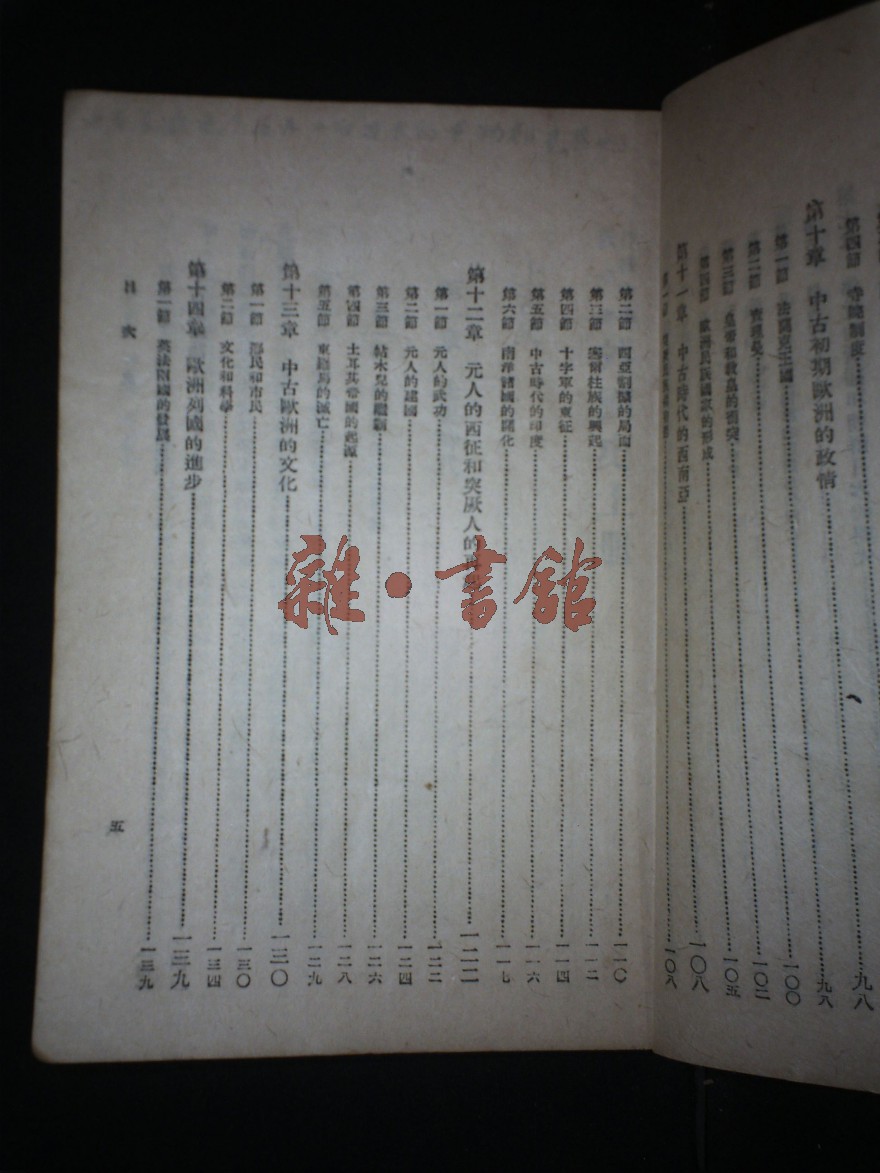 第四節 寺院制度……九八
第十章 中古初期歐洲的政情……九八
第一節 法蘭克王國……一〇〇
第二節 查理曼……一〇二
第三節 皇帝和教皇的衝突……一〇五
第四節 歐洲民族國家的形成……一〇八
第十一章 中古時代的西南亞……一〇八
第一節
第二節 西亞割據的局面……一一〇
第三節 塞爾柱族的興起……一一二
第四節 十字軍的東征……一一四
第五節 中古時代的印度……一一六
第六節 南洋諸國的開化……一一七
第十二章 元人的西征和突厥人的……一二二
第一節 元人的武功……一二二
第二節 元人的建國……一二四
第三節 帖木兒的繼起……一二六
第四節 土耳其帝國的起源……一二八
第五節 東羅馬的滅亡……一二九
第十三章 中古歐洲的文化……一三〇
第一節 鄉民和市民……一三〇
第二節 文化和科學……一三四
第十四章 歐洲列國的進步……一三九
第一節 英法兩國的發展……一三九
目次
五
雜·書館